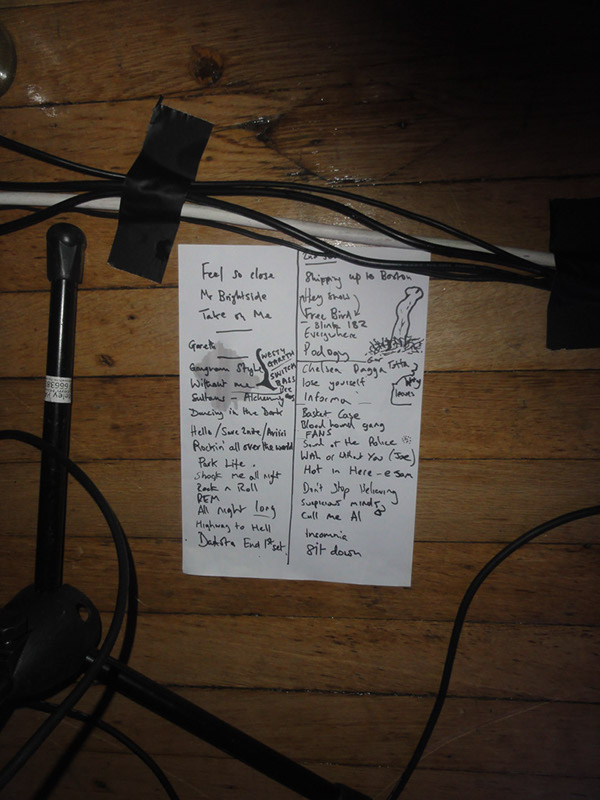 Feel so close
Mr Brightside
Take on Me
Gareth
Gangnam Style
Without me
NESTY
GARETH
SWITCH
BASS
Sultans - Alchemy
Dancing in the Dark
Hello / Swe
Rockin' all over the world
Park Life
Shook me all night
Rock n Roll
REM
All night long
Highway to Hell
Dakota End 1st set.
Shipping up to Boston
Hey
Free Bird
- Blink 182
Everywhere
Chelsea Dagga
lose yourself
leaves
Informa
Basket Case
Blood hound gang
FANS
Sand at the Police
With or What You (Joe)
Hot in Here - e Sam
Don't Stop Believing
Suspicious minds
Call me Al
Insomnia
Sit down